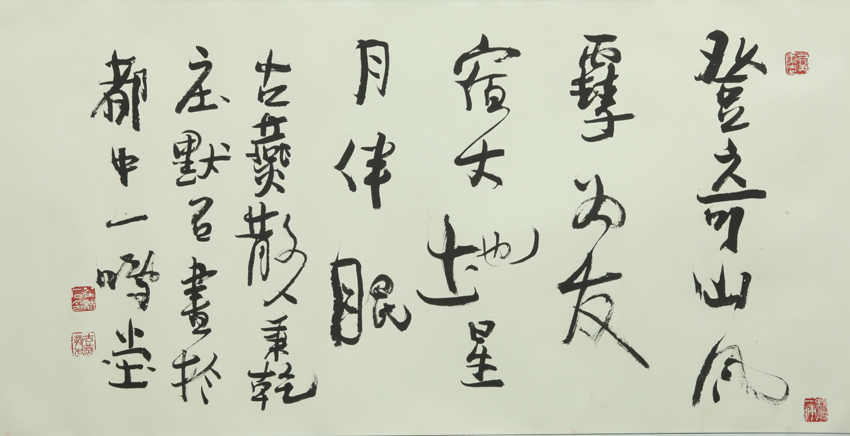 登奇山风
霽为友
宿大地星
月伴眠
古燕散人秉乾
庄默石書於
都中一鳴堂